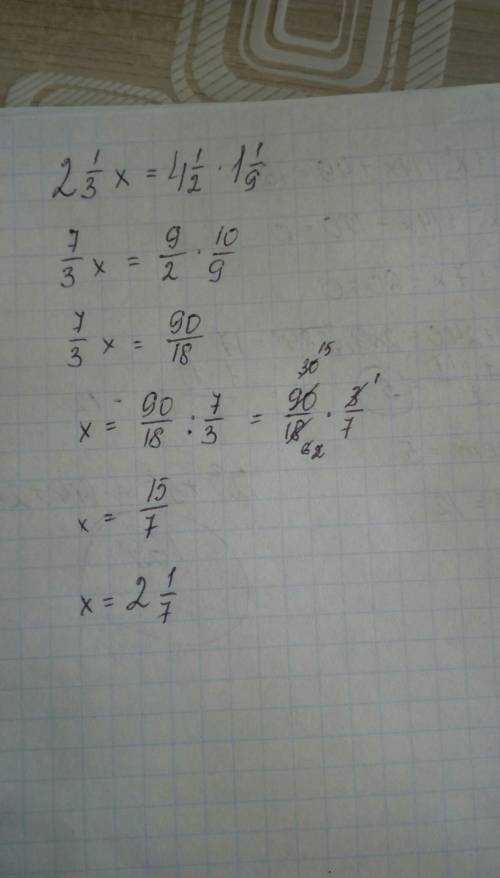 2 1/3 x = 4 1/2 · 1 1/9
7/3 x = 9/2 · 10/9
7/3 x = 90/18
x = 90/18 : 7/3 = 90/18 · 3/7
30 15 1
6 2
x = 15/7
x = 2 1/7